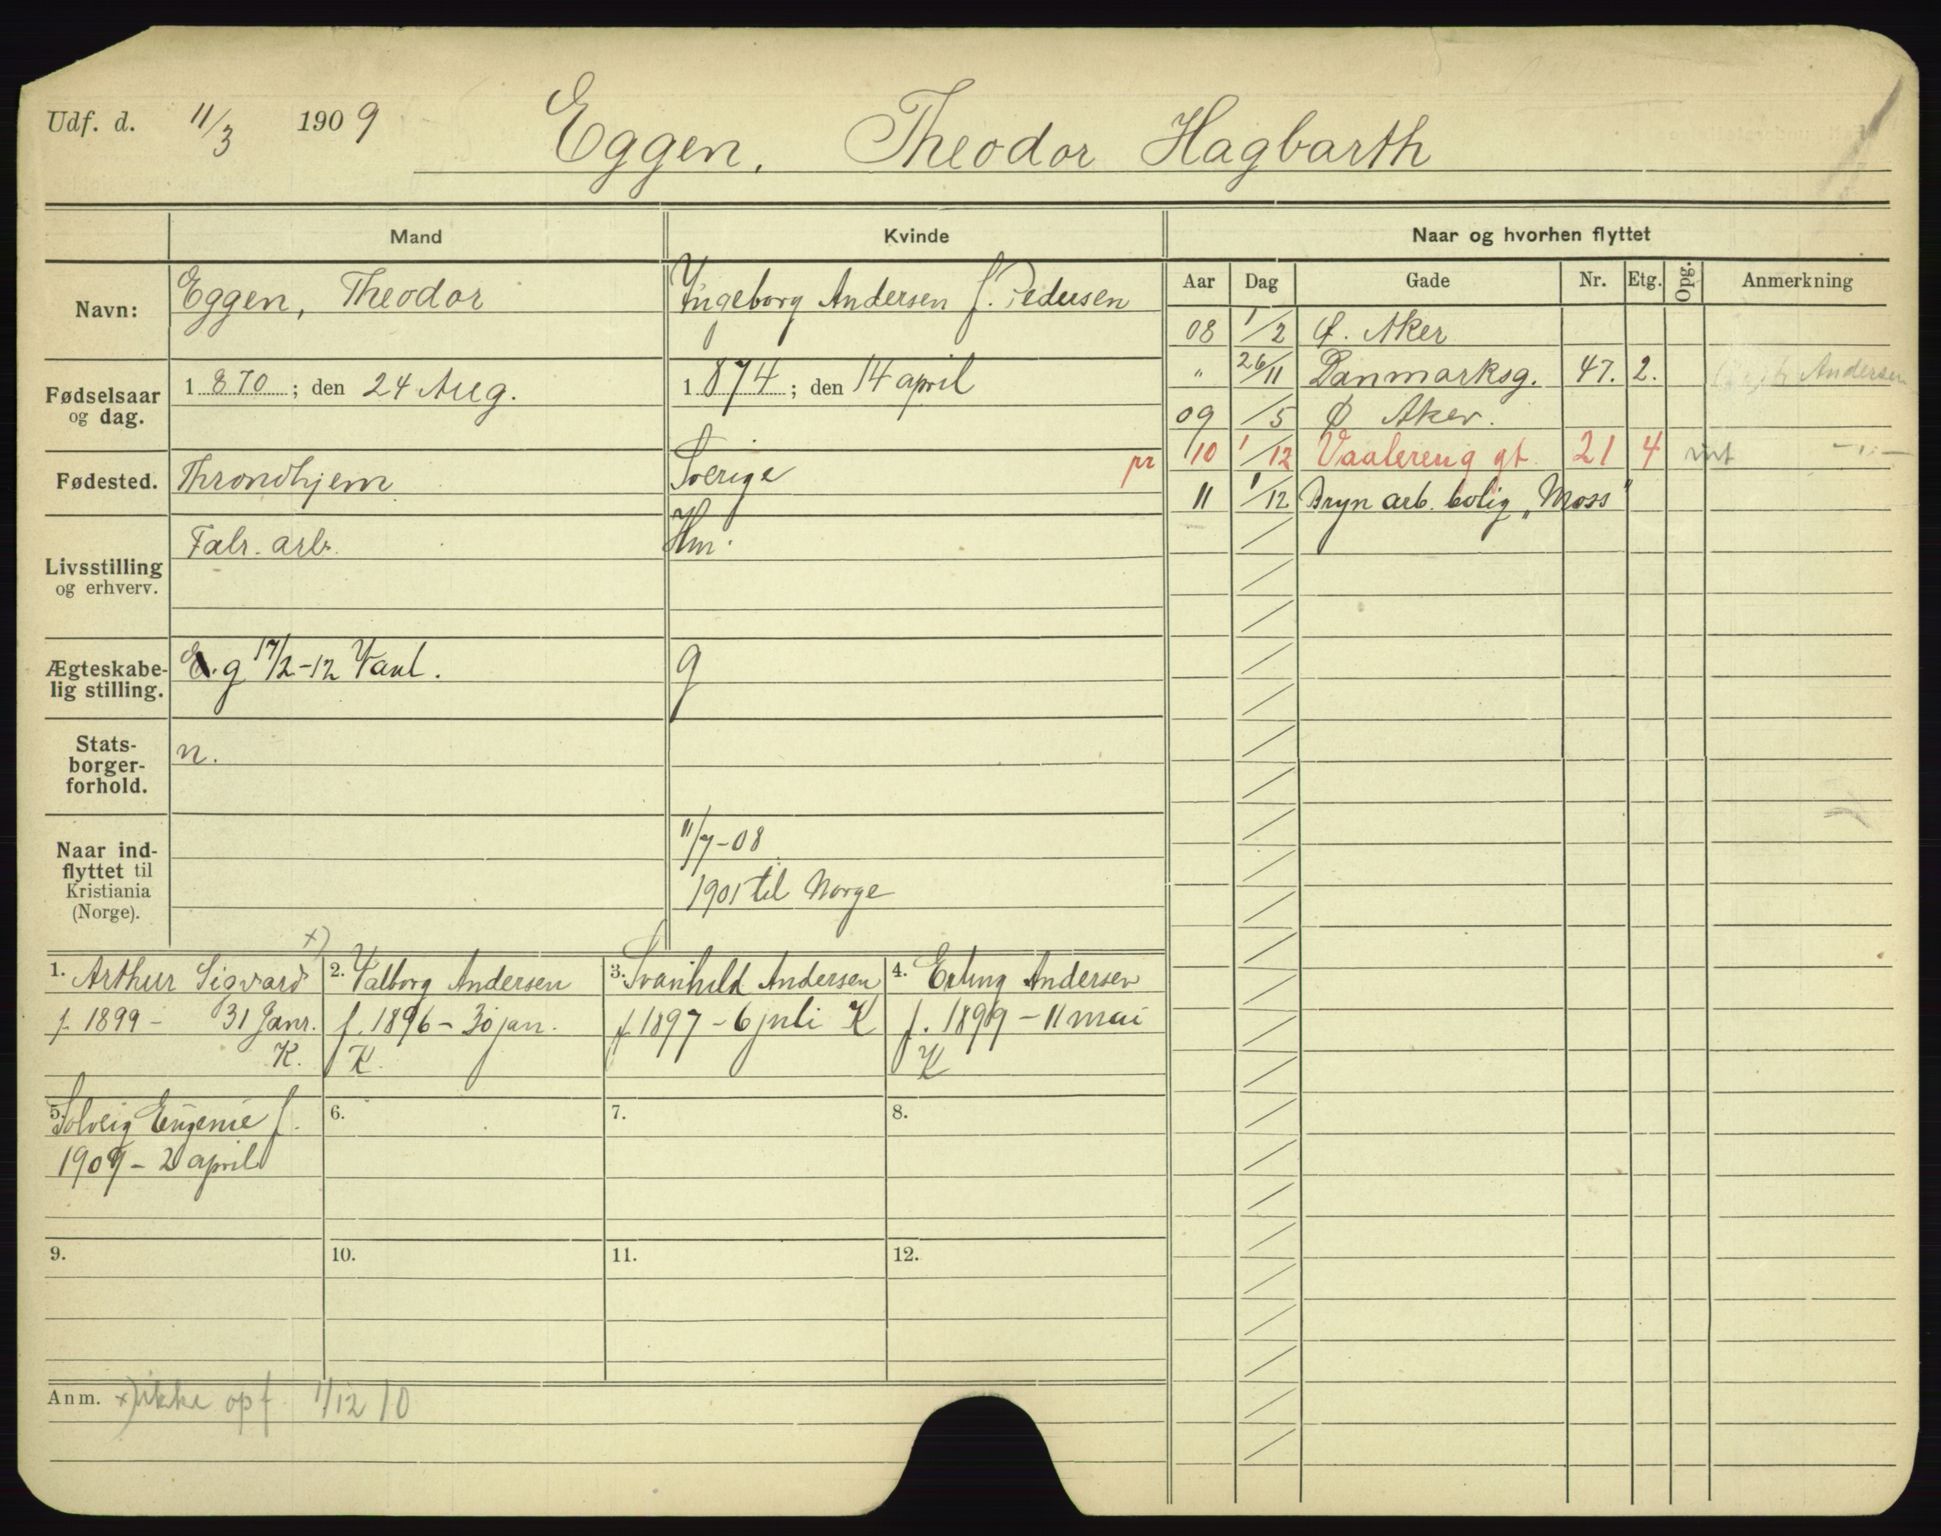 Udf. d. 11/3 1909 Eggen, Theodor Hagbarth
Mand Kvinde Naar og hvorhen flyttet
Aar Dag Gade Nr. Etg. Opg. Anmerkning
Navn: Eggen, Theodor Ingeborg Andersen f. Pedersen
Fødselsaar og dag. 1870; den 24 Aug. 1874; den 14 april
Fødested. Throndhjem Sverige pr
Livsstilling og erhverv. Fabr. arb. Hm.
Ægteskabe-
lig stilling. E. g 17/2-12 g
Stats-
borger-
forhold. n.
Naar ind-
flyttet til
Kristiania
(Norge). 11/7-08
1901 til Norge
08 1/2 Ø. Aker
" 26/11 Danmarksg. 47. 2. Andersen
09 /5 Ø Aker.
10 1/12 Vaalereng gt. 21 4
11 1/12 Bryn arb. bolig „Moss"
x)
1. Arthur Sigvard
f. 1899 - 31 Janr.
K.
2. Valborg Andersen
f. 1896 - 30 jan.
K.
3. Svanhild Andersen
f. 1897 - 6 juli K
4. Erling Andersen
f. 1899 - 11 mai
K
5. Solveig Eugenie f.
1909 - 2 april
6.
7.
8.
9.
10.
11.
12.
Anm. x) ikke opf. 1/12 10